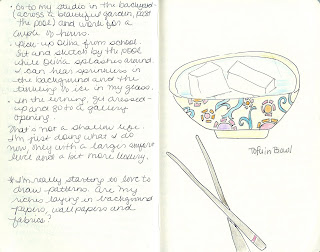 • Go to my studio in the backyard
(across a beautiful garden, past
the pool) and work for a
couple of hours.
• Pick up Olivia from school.
Sit and sketch by the pool
while Olivia splashes around
I can hear sprinklers in
the background and the
of ice in my glass.
• In the evening, get dressed
up and go to a gallery
opening.
That's not a shallow life.
I'm just doing what I do
now, only with a larger
and a bit more luxury.
* I'm really starting to love to
draw patterns. Are my
riches laying in background
papers, wallpapers and
fabrics?
Tofu in Bowl